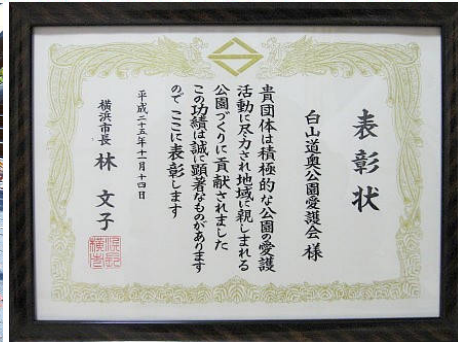 表彰状
白山道奥公園愛護会 様
貴団体は積極的な公園の愛護
活動に尽力され地域に親しまれる
公園づくりに貢献されました
この功績は誠に顕著なものがあります
ので ここに表彰します
平成二十五年十一月十四日
横浜市長 林 文子